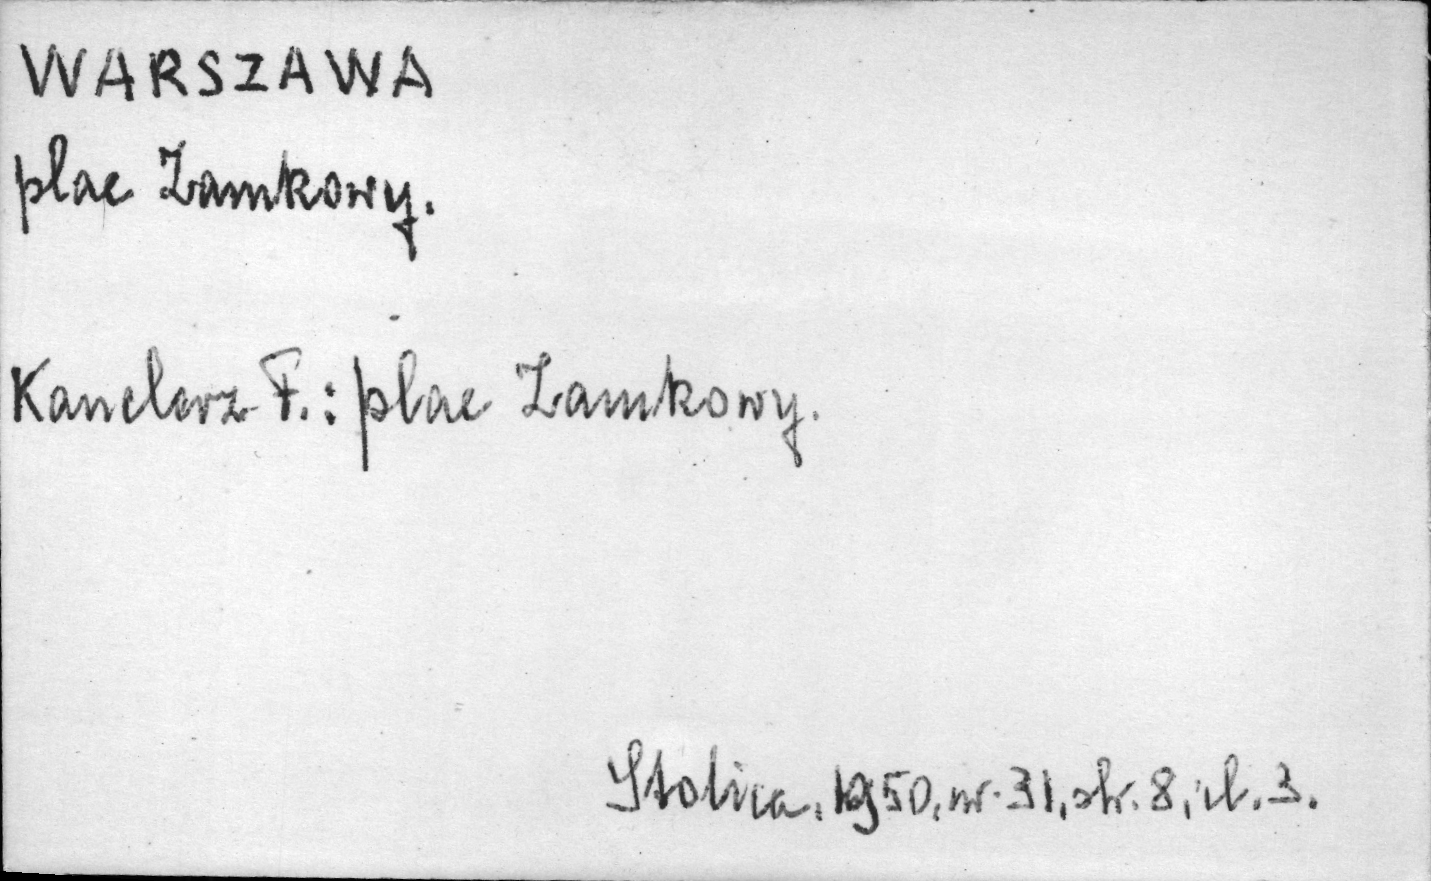 WARSZAWA
plac Zamkowy.
Kanclerz F.: plac Zamkowy.
Stolica, 1950, nr. 31, str. 8, il. 3.